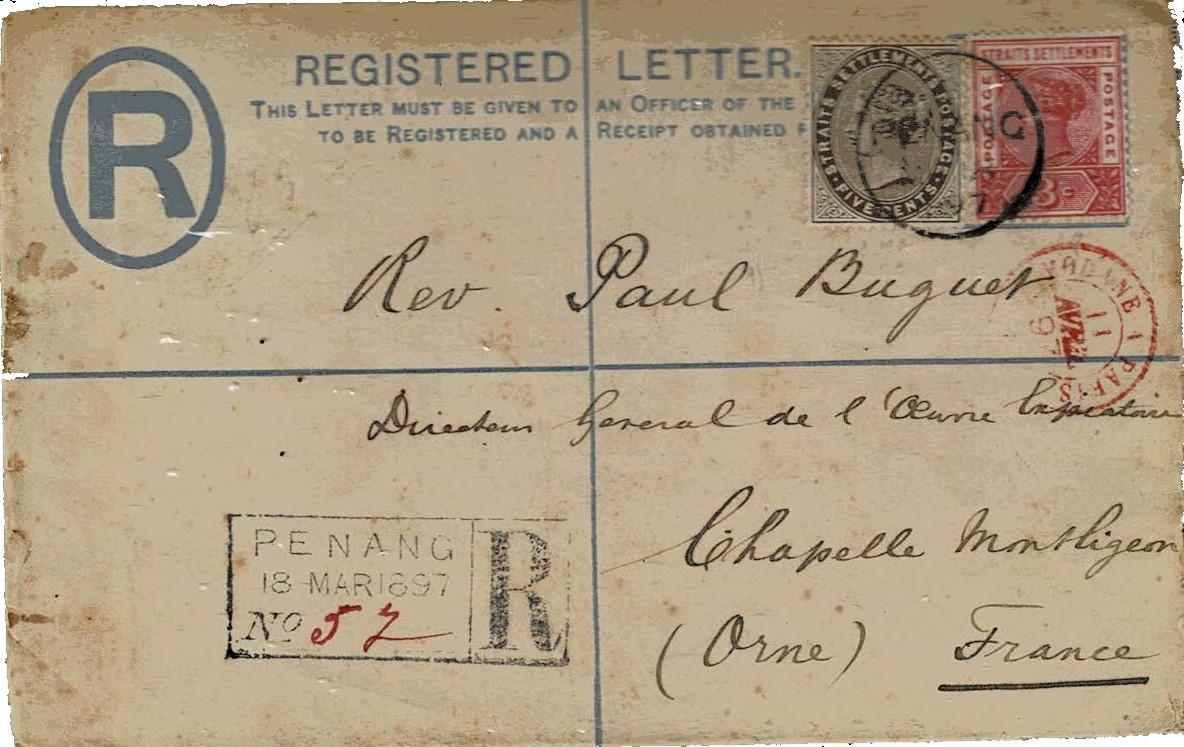 R
REGISTERED LETTER.
THIS LETTER MUST BE GIVEN TO AN OFFICER OF THE
TO BE REGISTERED AND A RECEIPT OBTAINED F
STRAITS SETTLEMENTS POSTAGE
FIVE CENTS
STRAITS SETTLEMENTS
POSTAGE
POSTAGE
3c
Rev. Paul Buguet
MODANE A PARIS
11
AVRIL
97
Directeur General de l'Œuvre Expiatoire
Chapelle Montligeon
(Orne) France
PENANG
18 MAR 1897
No 57
R